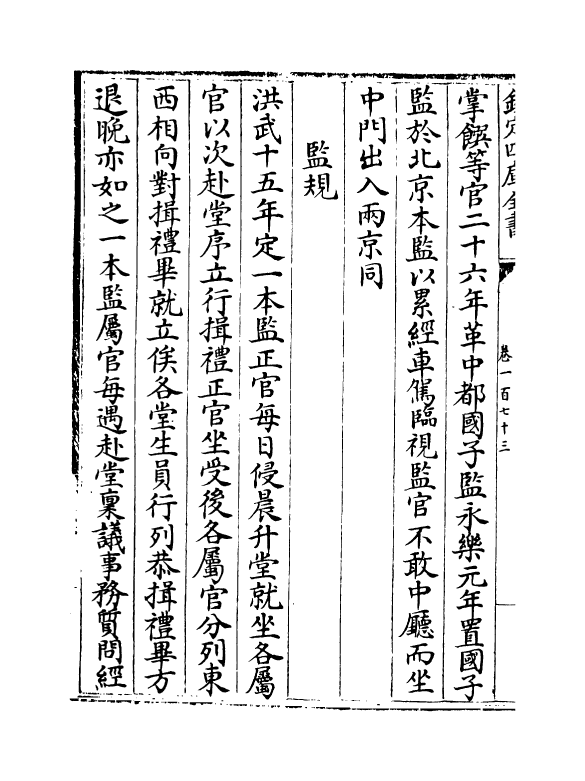 欽定四庫全書
卷一百七十三
掌饌等官二十六年革中都國子監永樂元年置國子
監於北京本監以累經車駕臨視監官不敢中廳而坐
中門出入兩京同
監規
洪武十五年定一本監正官每日侵晨升堂就坐各屬
官以次赴堂序立行揖禮正官坐受後各屬官分列東
西相向對揖禮畢就立俟各堂生員行列恭揖禮畢方
退晚亦如之一本監屬官每遇赴堂稟議事務質問經